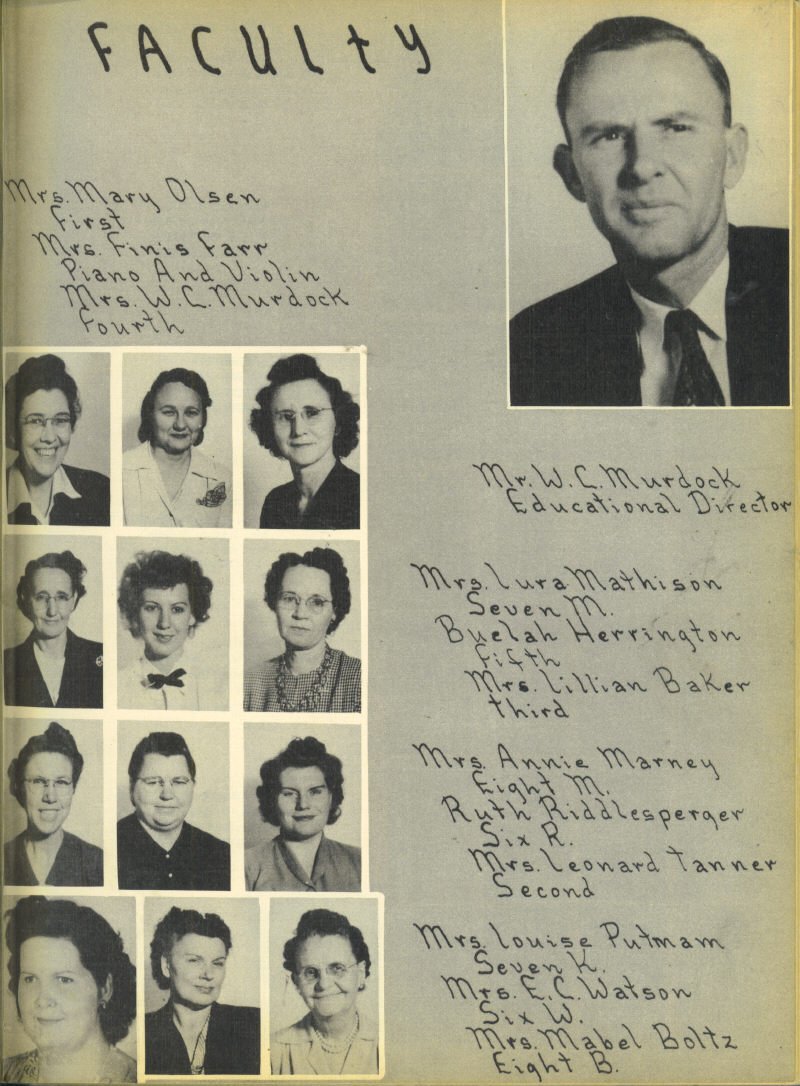 FACULTY
Mrs. Mary Olsen
First
Mrs. Finis Farr
Piano And Violin
Mrs. W.C. Murdock
Fourth
Mr. W.C. Murdock
Educational Director
Mrs. Lura Mathison
Seven M.
Buelah Herrington
Fifth
Mrs. Lillian Baker
Third
Mrs. Annie Marney
Eight M.
Ruth Riddlesperger
Six R.
Mrs. Leonard Tanner
Second
Mrs. Louise Putmam
Seven K.
Mrs. E.C. Watson
Six W.
Mrs. Mabel Boltz
Eight B.